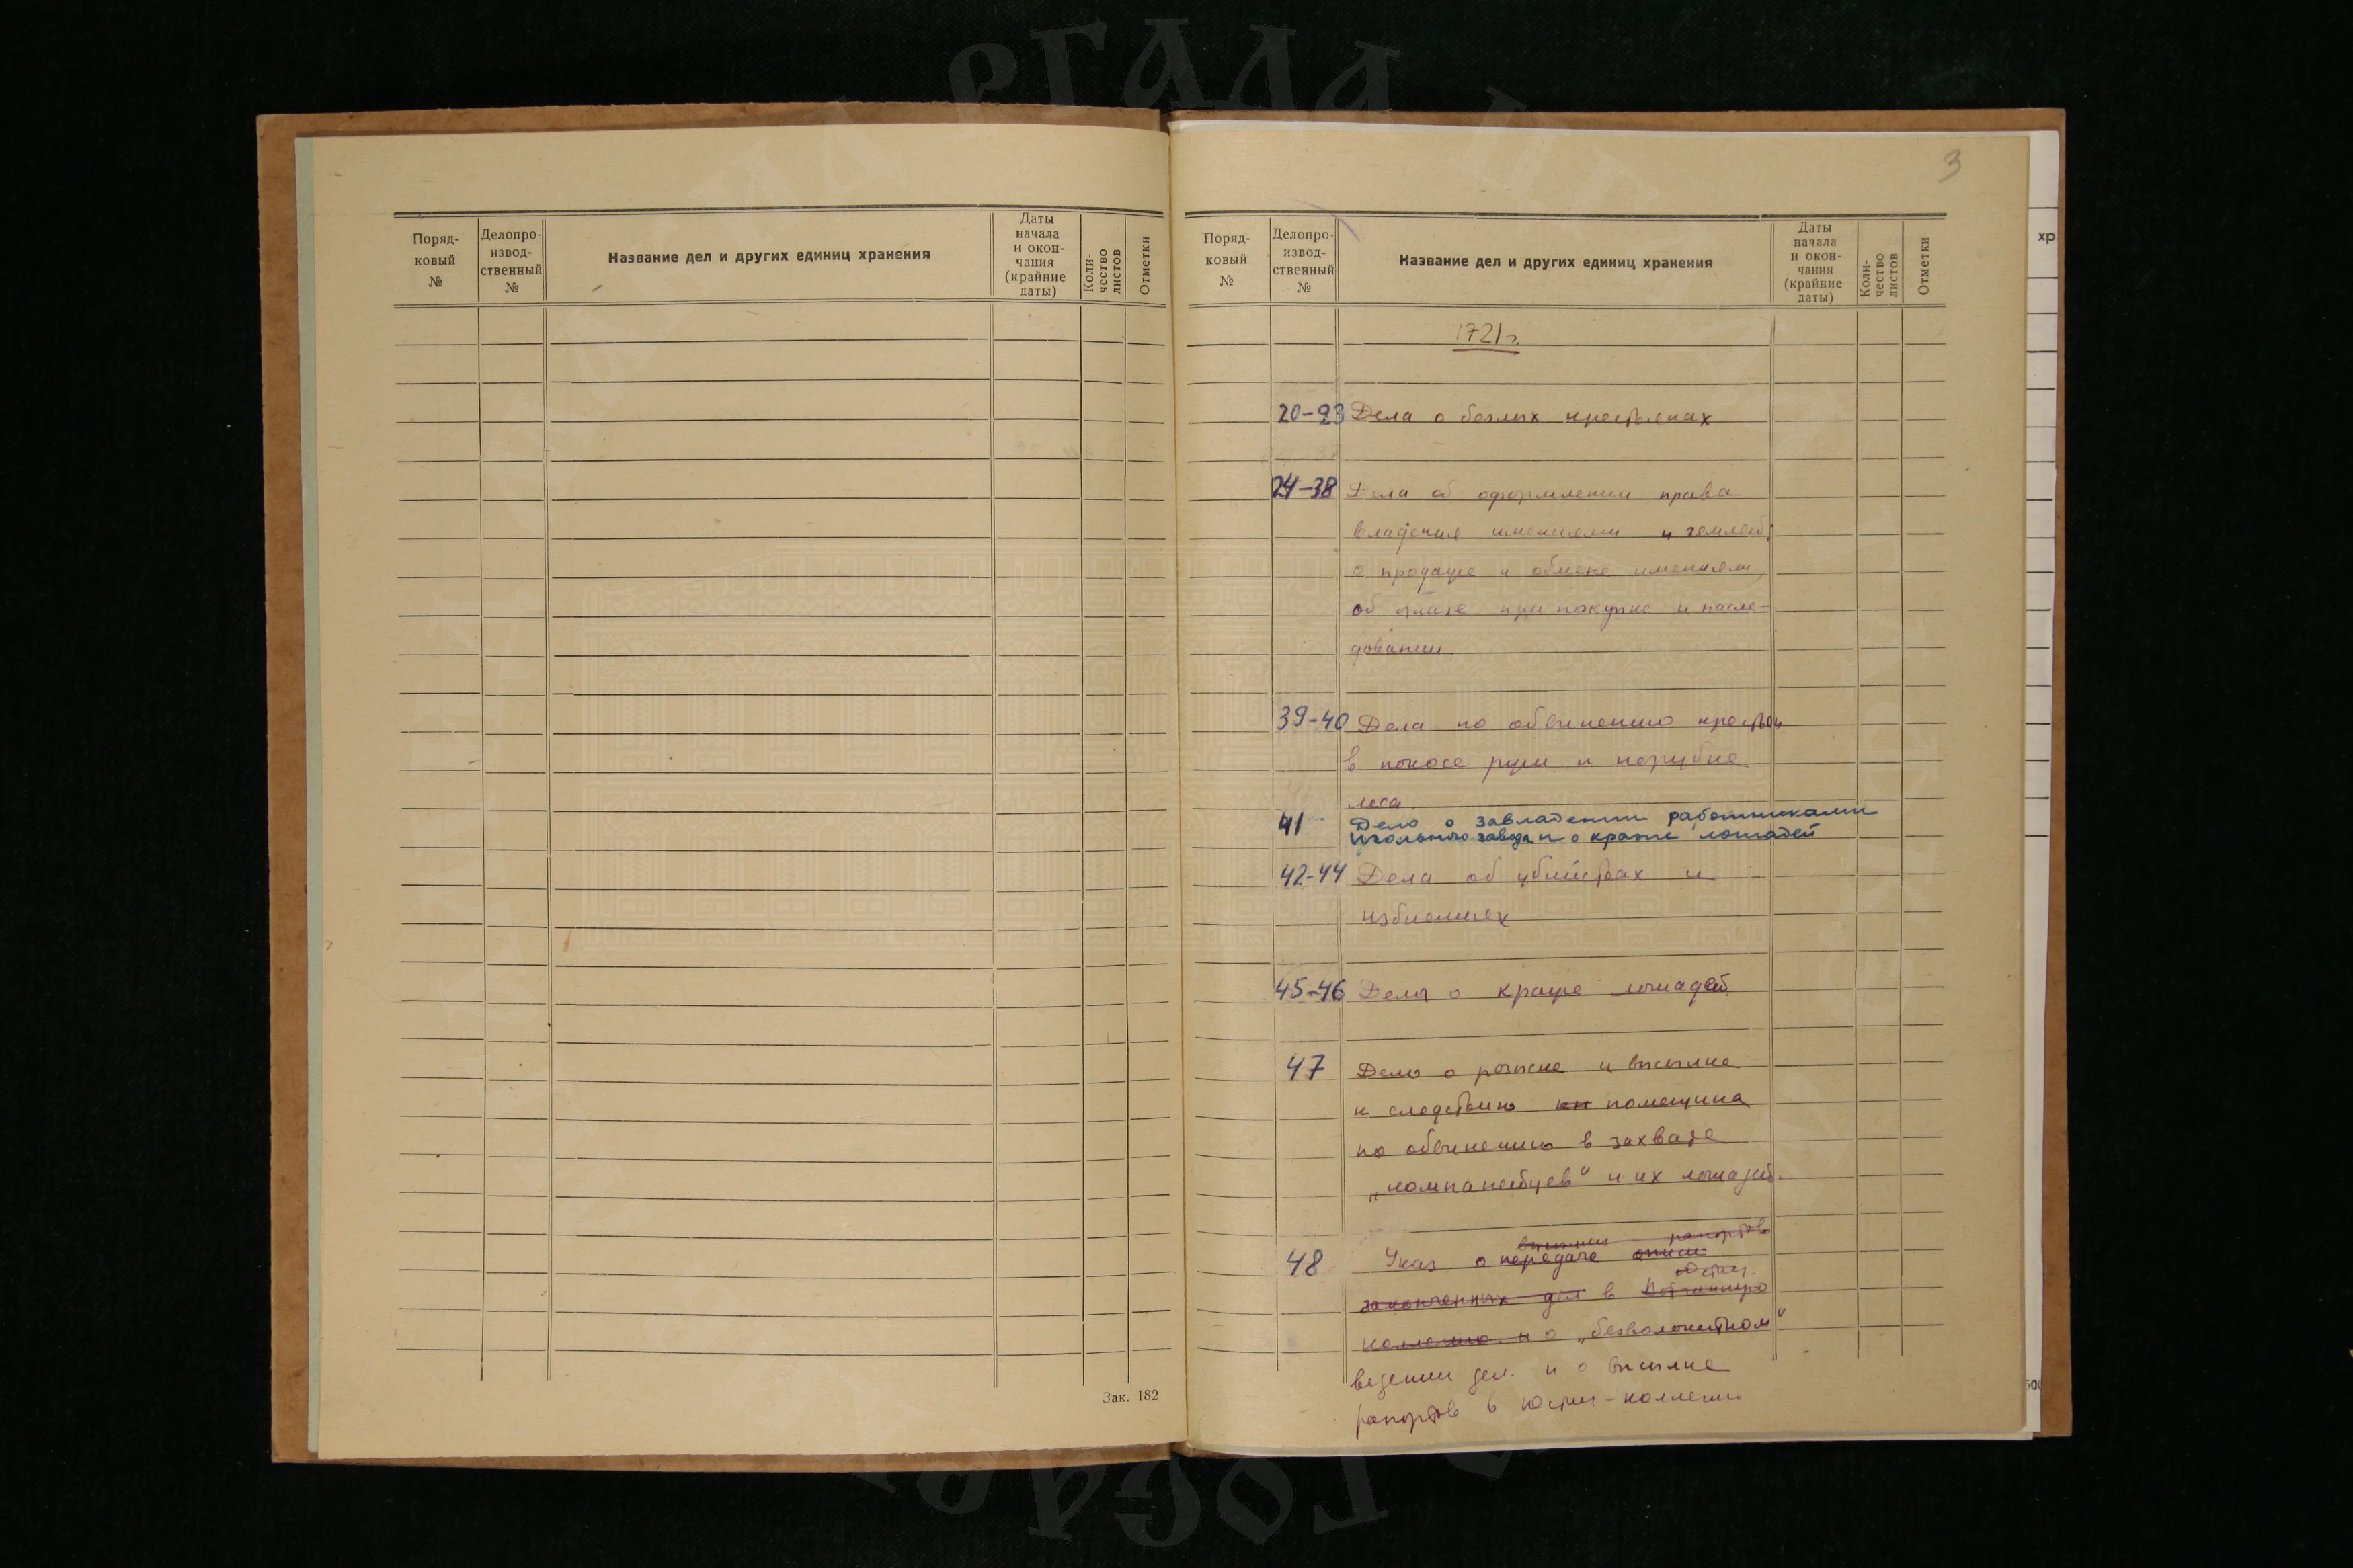 Поряд-
ковый
№
Делопро-
извод-
ственный
№
Название дел и других единиц хранения
Даты
начала
и окон-
чания
(крайние
даты)
Коли-
чество
листов
Отметки
Зак. 182
3
Поряд-
ковый
№
Делопро-
извод-
ственный
№
Название дел и других единиц хранения
Даты
начала
и окон-
чания
(крайние
даты)
Коли-
чество
листов
Отметки
хр
1721 г.
20-23 Дела о беглых крестьянах
24-38 Дела об оформлении права
владения имениями и землей;
о продаже и обмене имениями,
об отказе при покупке и насле-
довании
39-40 Дела по обвинению крестьян
в покосе ржи и порубке
леса
41 Дело о завладении работниками
Игольного завода и о краже лошадей
42-44 Дела об убийствах и
избиениях
45-46 Дела о краже лошадей
47 Дело о розыске и высылке
к следствию помещика
по обвинению в захвате
„компанейцев“ и их лошадей.
рапортов
48 Указ о передаче описи
Юстиц
законченных дел в Вотчинную
коллегию и о „безволокитном“
ведении дел. и о высылке
рапортов в Юстиц-коллегию
РГАДА